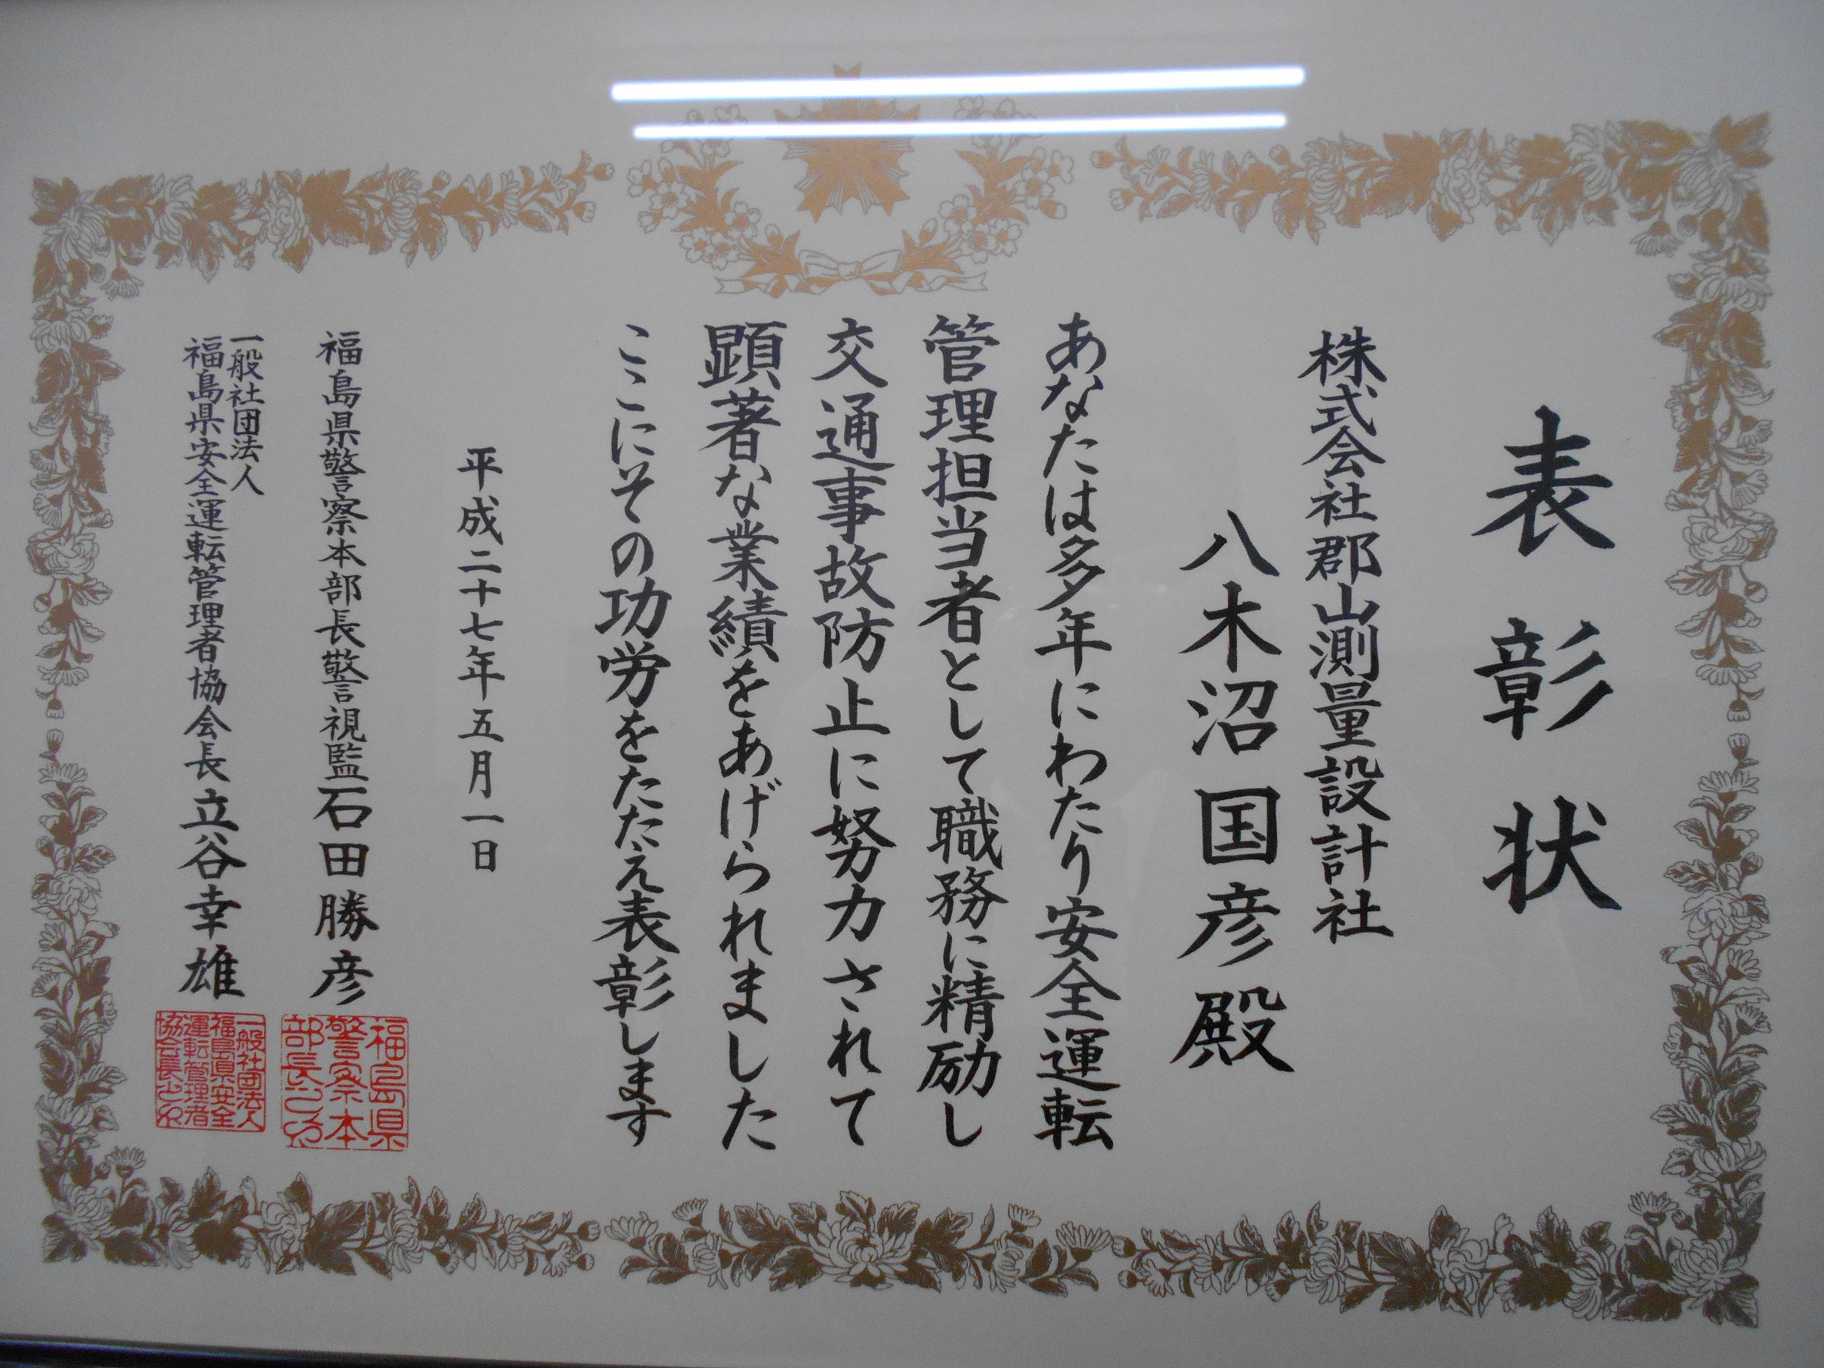 表彰状
株式会社郡山測量設計社
八木沼国彦殿
あなたは多年にわたり安全運転
管理担当者として職務に精励し
交通事故防止に努力されて
顕著な業績をあげられました
ここにその功労をたたえ表彰します
平成二十七年五月一日
福島県警察本部長警視監石田勝彦
福島県警察本部長之印
一般社団法人
福島県安全運転管理者協会長立谷幸雄
一般社団法人福島県安全運転管理者協会長之印